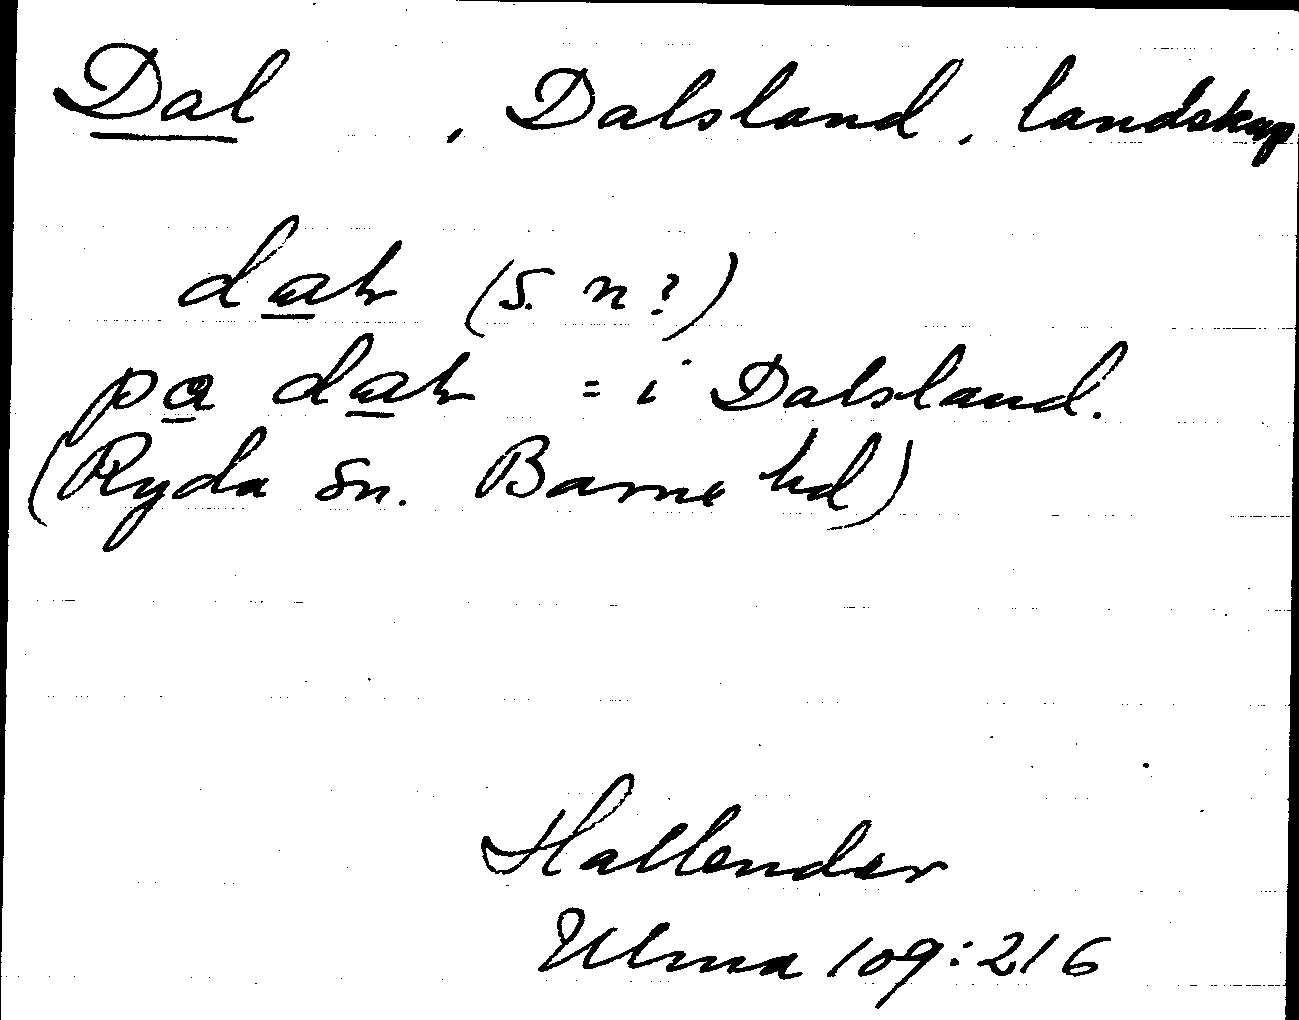 Dal , Dalsland, landskap
dal (s. n?)
på dal = i Dalsland.
(Ryda sn. Barne hd)
Hallender
Ulma 109:216